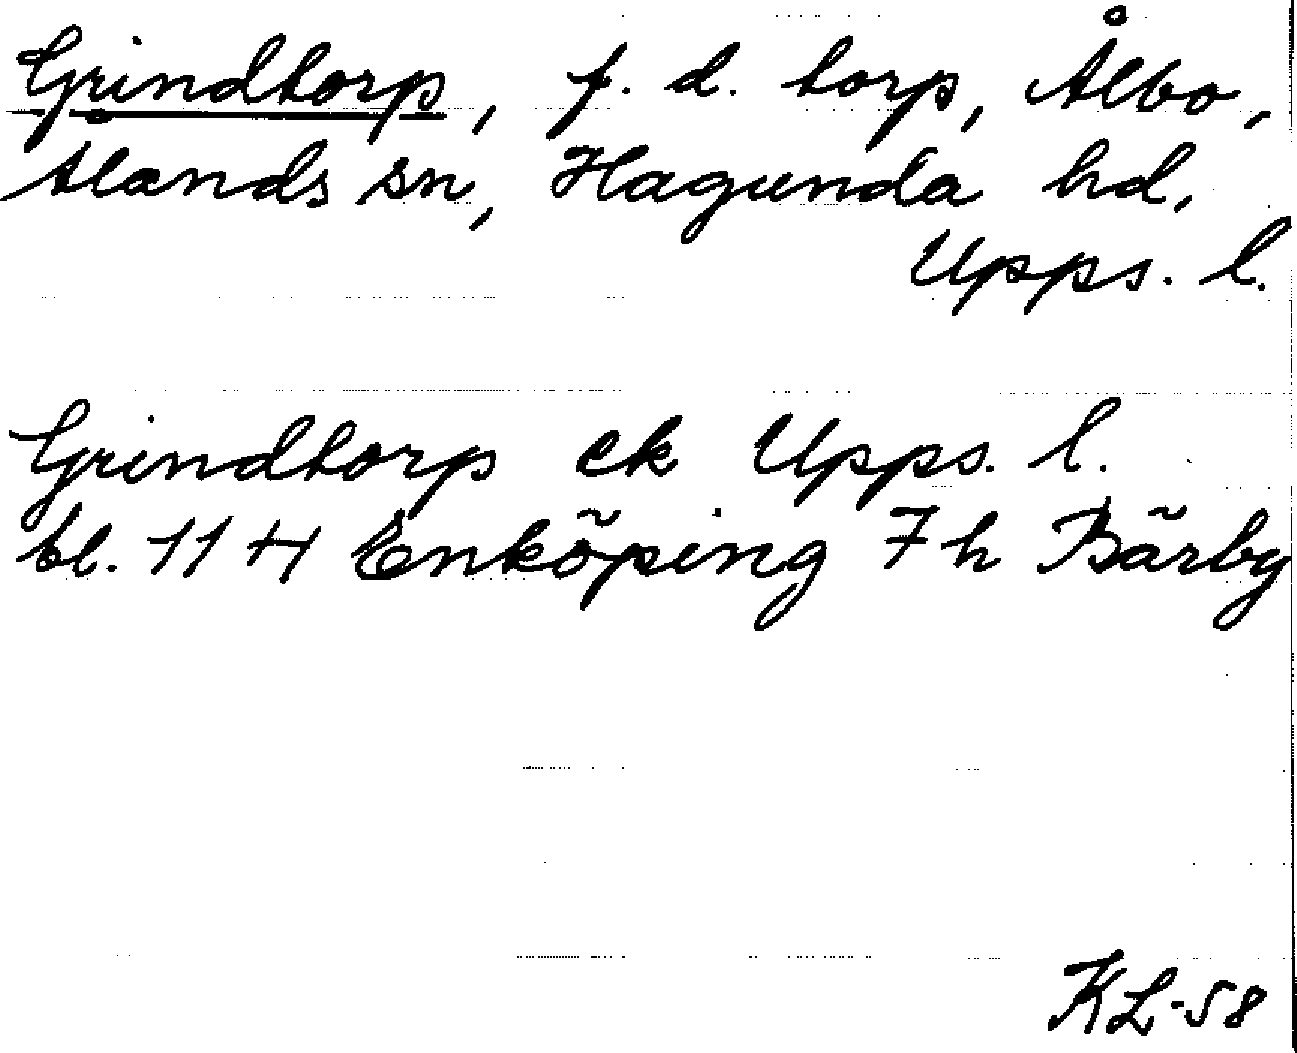 Grindtorp, f. d. torp, Ålbo,
Ålands sn, Hagunda hd,
Upps. l.
Grindtorp ek Upps. l.
bl. 11 H Enköping 7 h Bärby
KL-58